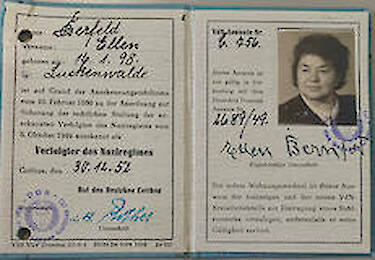 Ellen
geboren am 14.1.98.
in Luckenwalde
ist auf Grund der Anerkennungsrichtlinien
vom 10. Februar 1950 zu der Anordnung zur
Sicherung der rechtlichen Stellung der an-
erkannten Verfolgten des Naziregimes vom
5. Oktober 1949 anerkannt als
Verfolgter des Naziregimes
Cottbus, den 30.12.52
Rat des Bezirkes Cottbus
Unterschrift
VdN-Ausweis Nr.
6.756.
Dieser Ausweis ist
nur gültig in
Verbindung mit dem
Deutschen Personal-
Ausweis Nr.
2689/49.
Ellen
Eigenhändige Unterschrift
Bei jedem Wohnungswechsel ist dieser Aus-
weis der bisherigen und der neuen VdN-
Kreisdienststelle zur Eintragung eines Sicht-
vermerks vorzulegen, andernfalls er seine
Gültigkeit verliert.